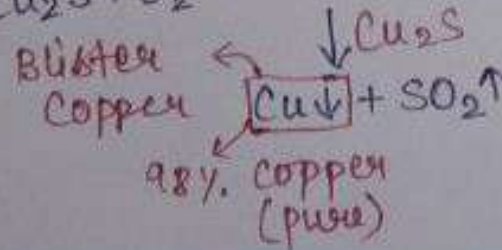 Cu2S
Blister
Copper
Cu↓ + SO2↑
98%. Copper
(pure)